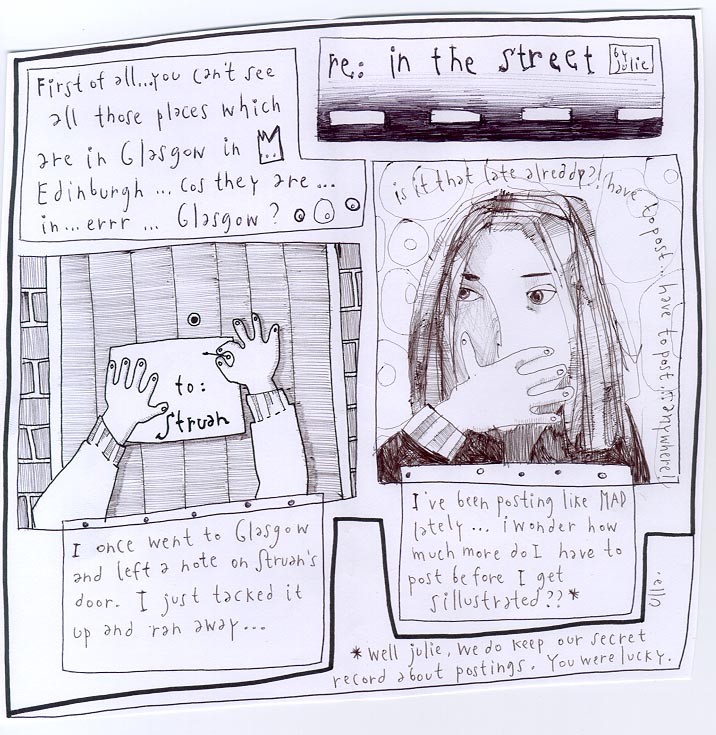 re: in the street
by julie
First of all...you can't see
all those places which
are in Glasgow in
Edinburgh ... cos they are ...
in ... errr ... Glasgow?
is it that late already?! have to post... have to post... anywhere!
to:
Struan
I once went to Glasgow
and left a note on Struan's
door. I just tacked it
up and ran away...
I've been posting like MAD
lately... i wonder how
much more do I have to
post before I get
sillustrated??*
ello
* well julie, we do keep our secret
record about postings. You were lucky.